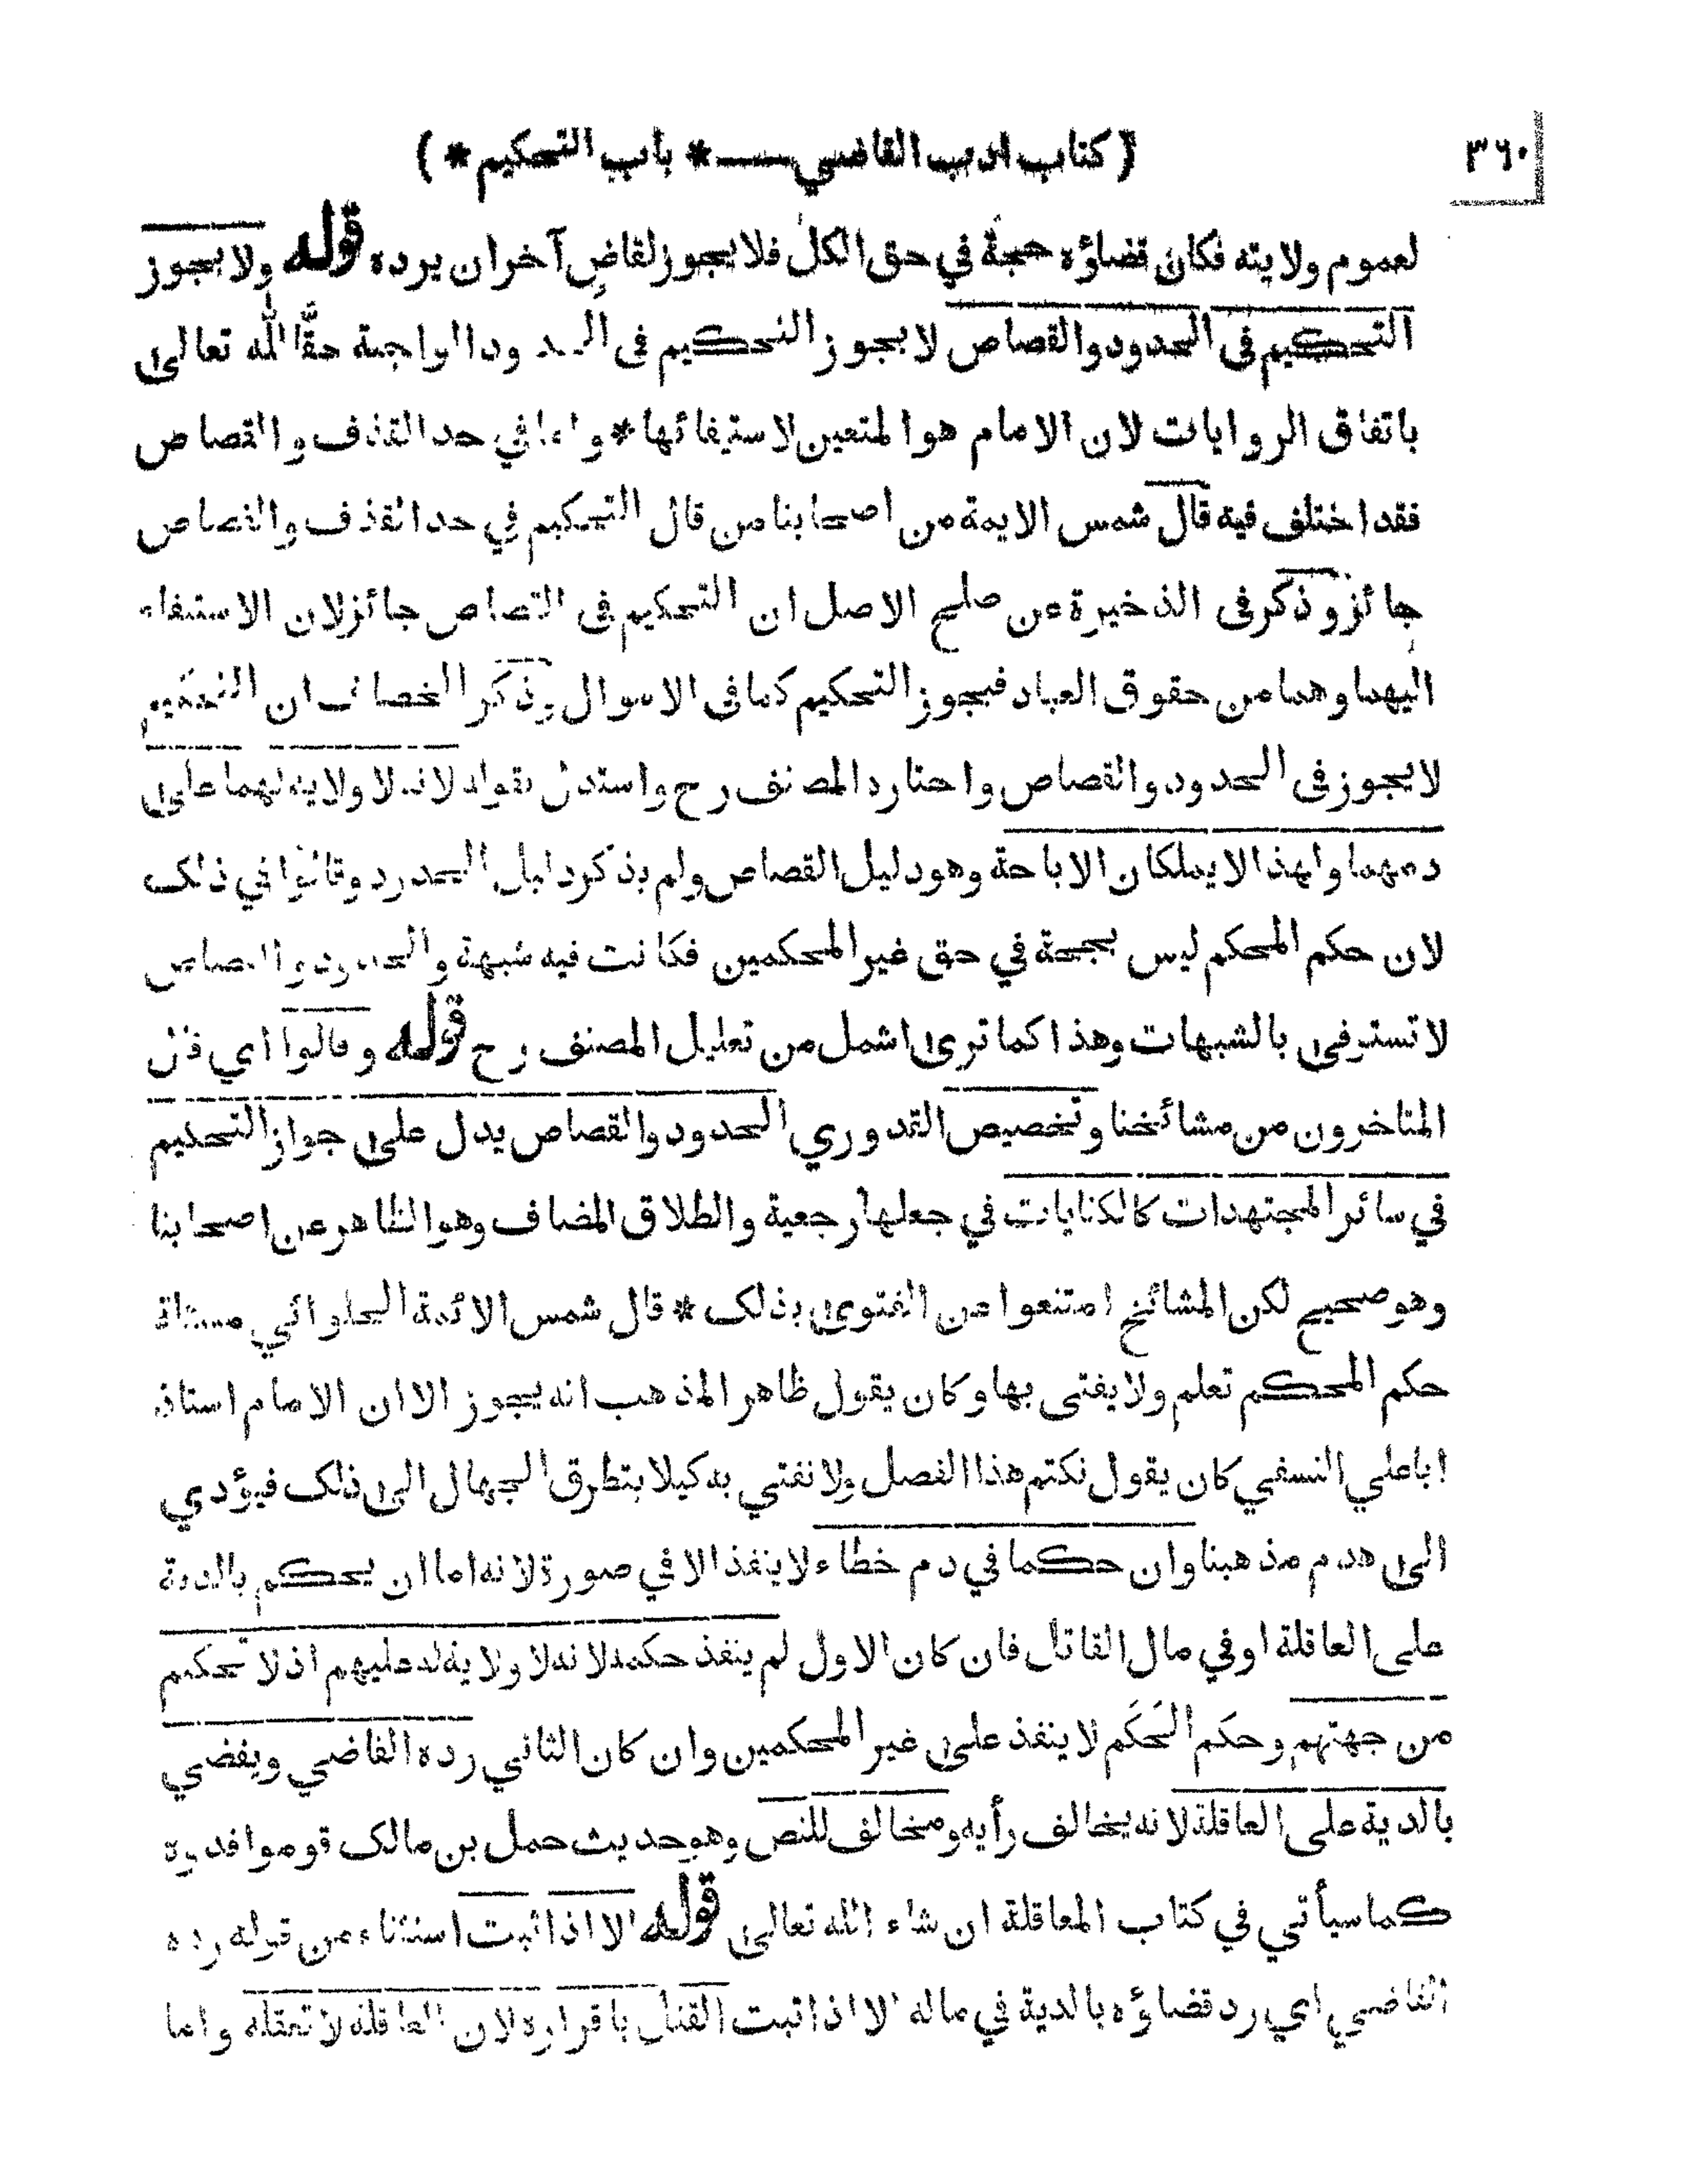 ٣٦٠
( كتاب ادب القاضي — * باب التحكيم * )
لعموم ولايته فكان قضاؤه حجة في حق الكل فلا يجوز لقاضٍ آخر ان يرده قوله ولا يجوز
التحكيم فى الحدود والقصاص لا يجوز التحكيم فى الحدود الواجبة حقًّا لله تعالى
باتفاق الروايات لان الامام هو المتعين لاستيفائها * واما في حد القذف والقصاص
فقد اختلف فيه قال شمس الايمة من اصحابنا من قال التحكيم في حد القذف والقصاص
جائز وذكر فى الذخيرة عن صلح الاصل ان التحكيم فى القصاص جائز لان الاستيفاء
اليهما وهما من حقوق العباد فيجوز التحكيم كما فى الاموال وذكر الخصاف ان التحكيم
لا يجوز فى الحدود والقصاص واختاره المصنف رح واستدل بقوله لانه لا ولاية لهما على
دمهما ولهذا لا يملكان الاباحة وهو دليل القصاص ولم يذكر دليل الحدود وقالوا في ذلك
لان حكم المحكم ليس بحجة في حق غير المحكمين فكانت فيه شبهة والحدود والقصاص
لا تستوفى بالشبهات وهذا كما ترى اشمل من تعليل المصنف رح قوله وقالوا اي قال
المتاخرون من مشائخنا وتخصيص القدوري الحدود والقصاص يدل على جواز التحكيم
في سائر المجتهدات كالكنايات في جعلها رجعية والطلاق المضاف وهو الظاهر عن اصحابنا
وهو صحيح لكن المشائخ امتنعوا عن الفتوى بذلك * قال شمس الائمة الحلوائي مسئلة
حكم المحكم تعلم ولا يفتى بها وكان يقول ظاهر المذهب انه يجوز الا ان الامام استاذ
اباعلي النسفي كان يقول نكتم هذا الفصل ولا نفتي به كيلا يتطرق الجهال الى ذلك فيؤدي
الى هدم مذهبنا وان حكما في دم خطاء لا ينفذ الا في صورة لانه اما ان يحكم بالدية
على العاقلة او في مال القاتل فان كان الاول لم ينفذ حكمه لانه لا ولاية له عليهم اذ لا تحكيم
من جهتهم وحكم الحَكَم لا ينفذ على غير المحكمين وان كان الثاني رده القاضي ويقضي
بالدية على العاقلة لانه يخالف رأيه ومخالف للنص وهو حديث حمل بن مالك قوموا فدوه
كما سيأتي في كتاب المعاقلة ان شاء الله تعالى قوله الا اذا ثبت استثناء من قوله رده
القاضي اي رد قضاؤه بالدية في ماله الا اذا ثبت القتل باقراره لان العاقلة لا تعقله واما